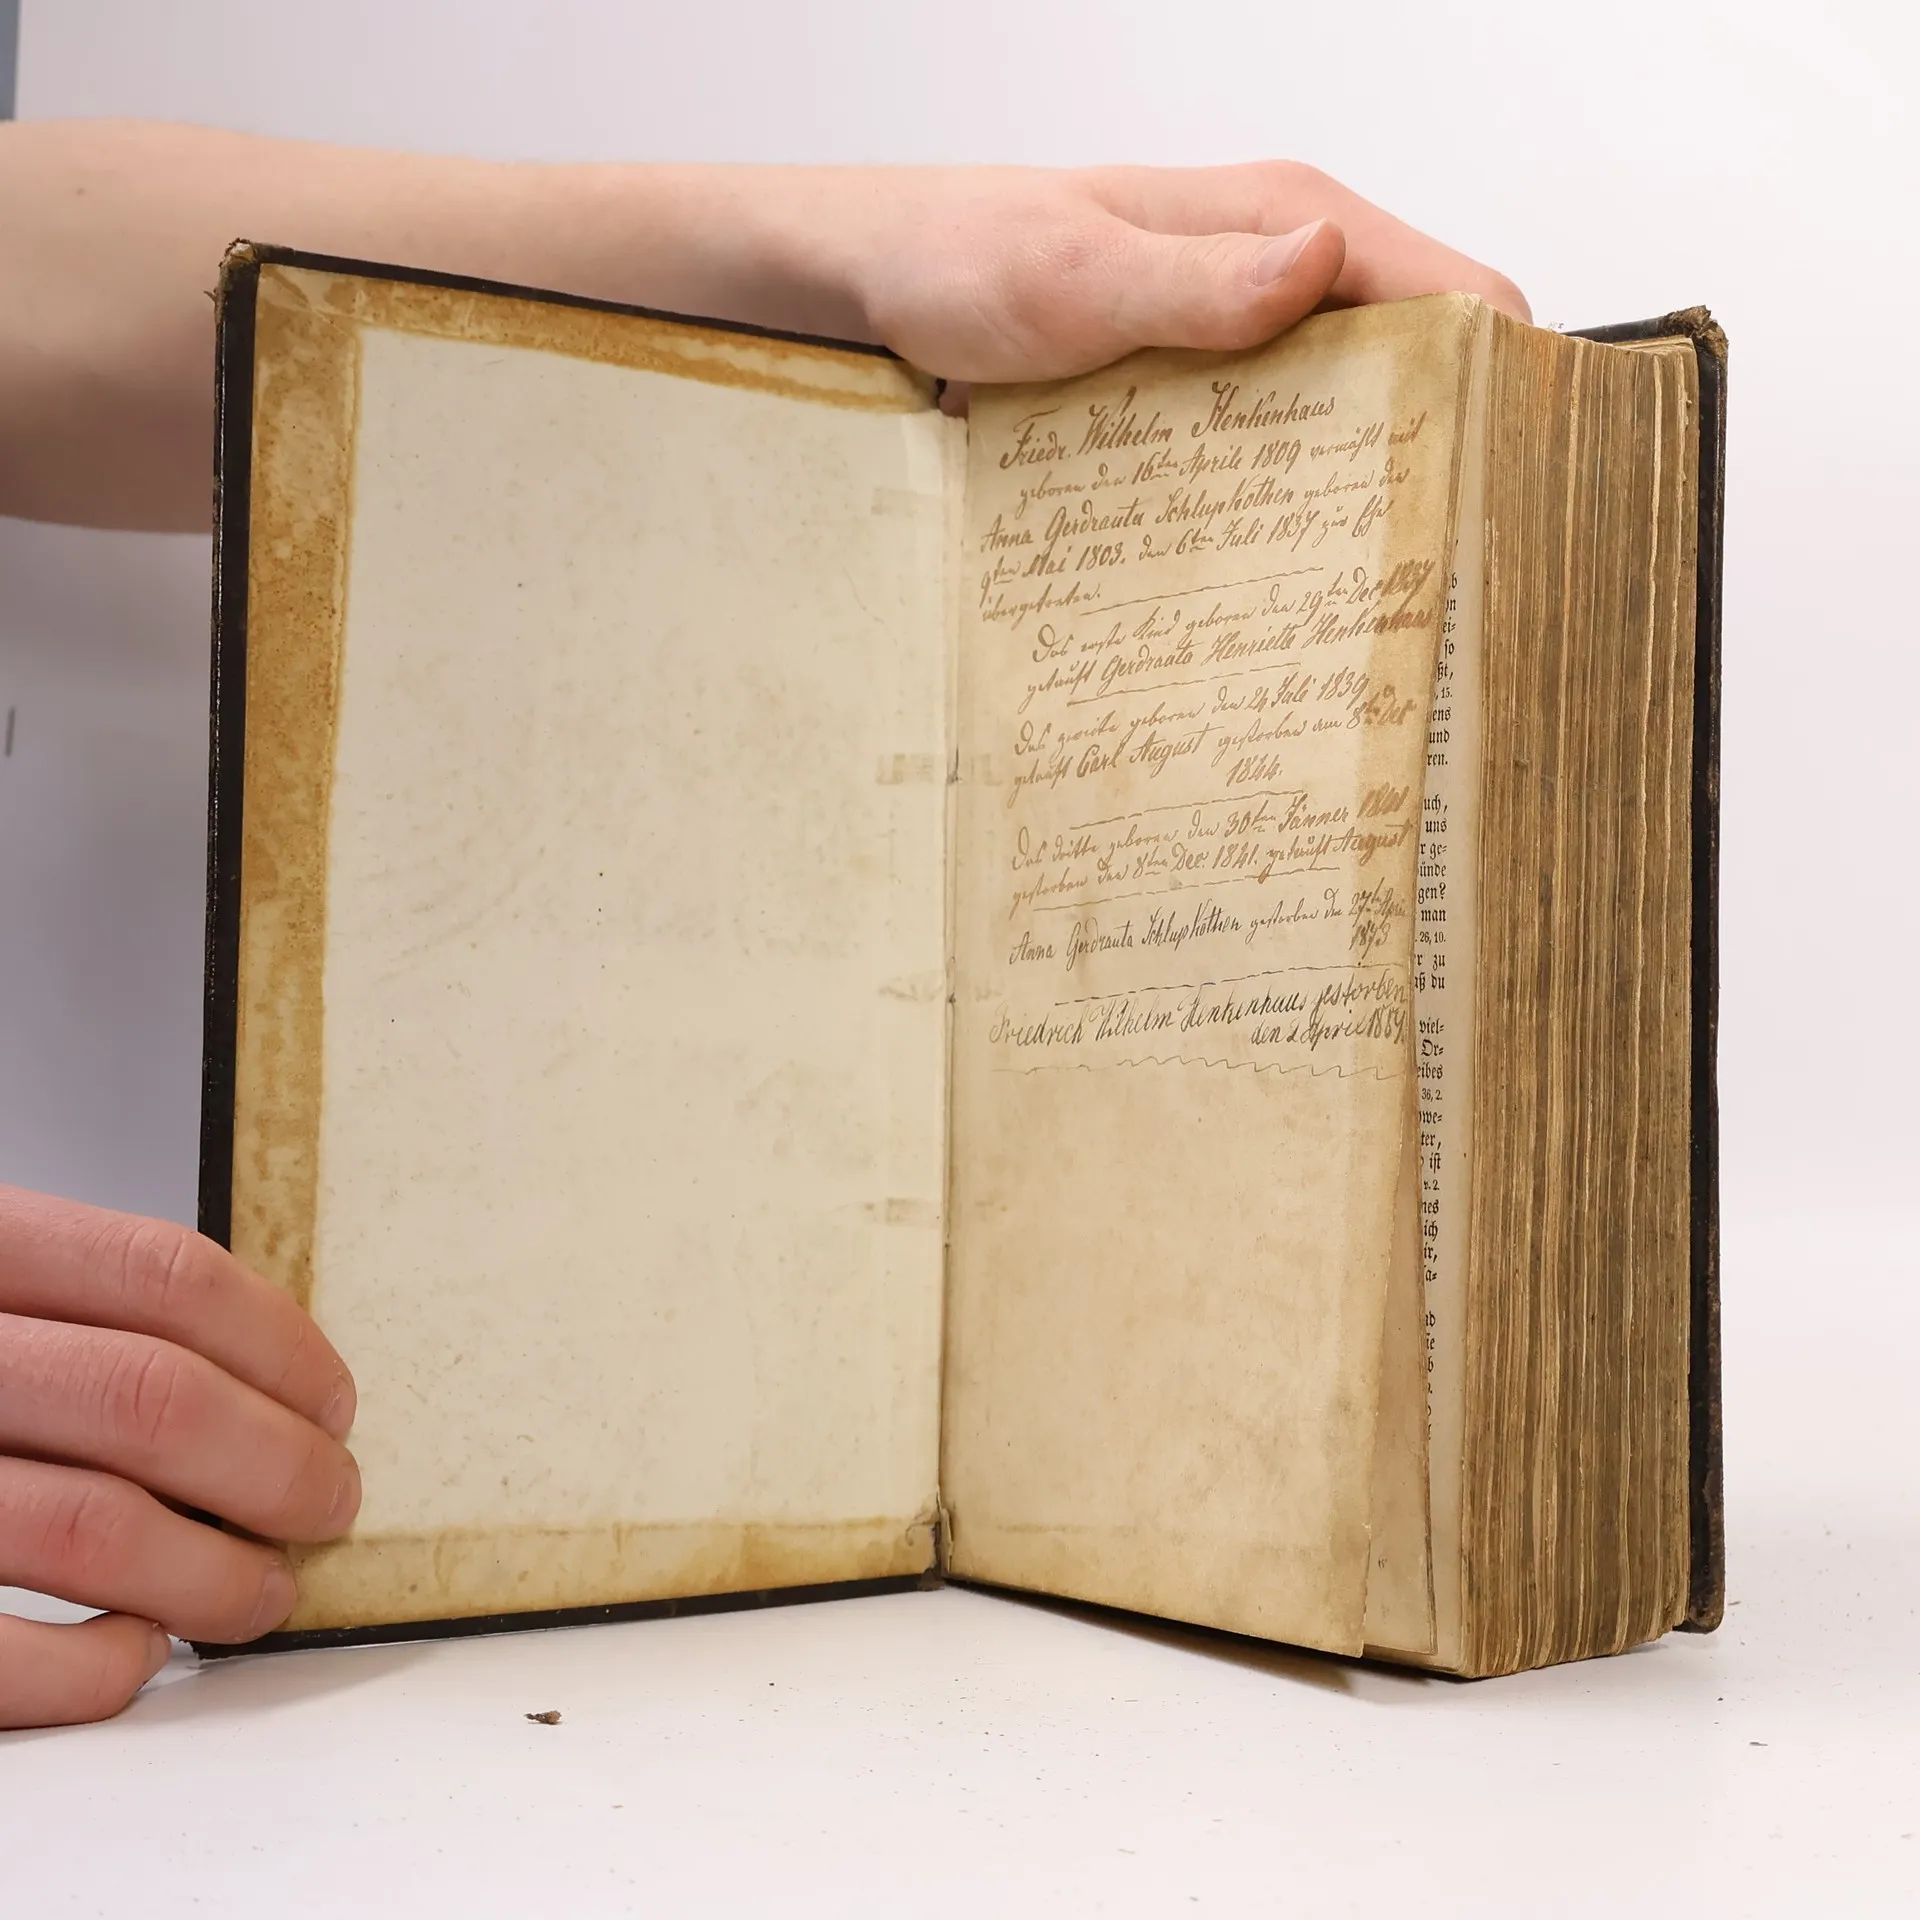 Friedr. Wilhelm Henkenhaus
geboren den 16ten Aprile 1809 vermählt mit
Anna Gerdrauta Schlupkothen geboren den
9ten Mai 1803. den 6ten Juli 1837 zur Ehe
übergetreten.
Das erste Kind geboren den 29ten Dec 1837
getauft Gerdrauta Henrietta Henkenhaus
Das zweite geboren den 24 Juli 1839
getauft Carl August gestorben am 8ten Dec
1844.
Das dritte geboren den 30ten Jänner 1841
gestorben den 8ten Dec. 1841. getauft August
Anna Gerdrauta Schlupkothen gestorben den 27ten
1873
Friedrich Wilhelm Henkenhaus gestorben
den 2 April
ei=
so
ßt,
15.
ens
und
ren.
uch,
uns
r ge=
ünde
gen?
man
26, 10.
r zu
aß du
viel=
Or=
eibes
36, 2.
we=
ter,
ist
v. 2.
nes
ich
ir,